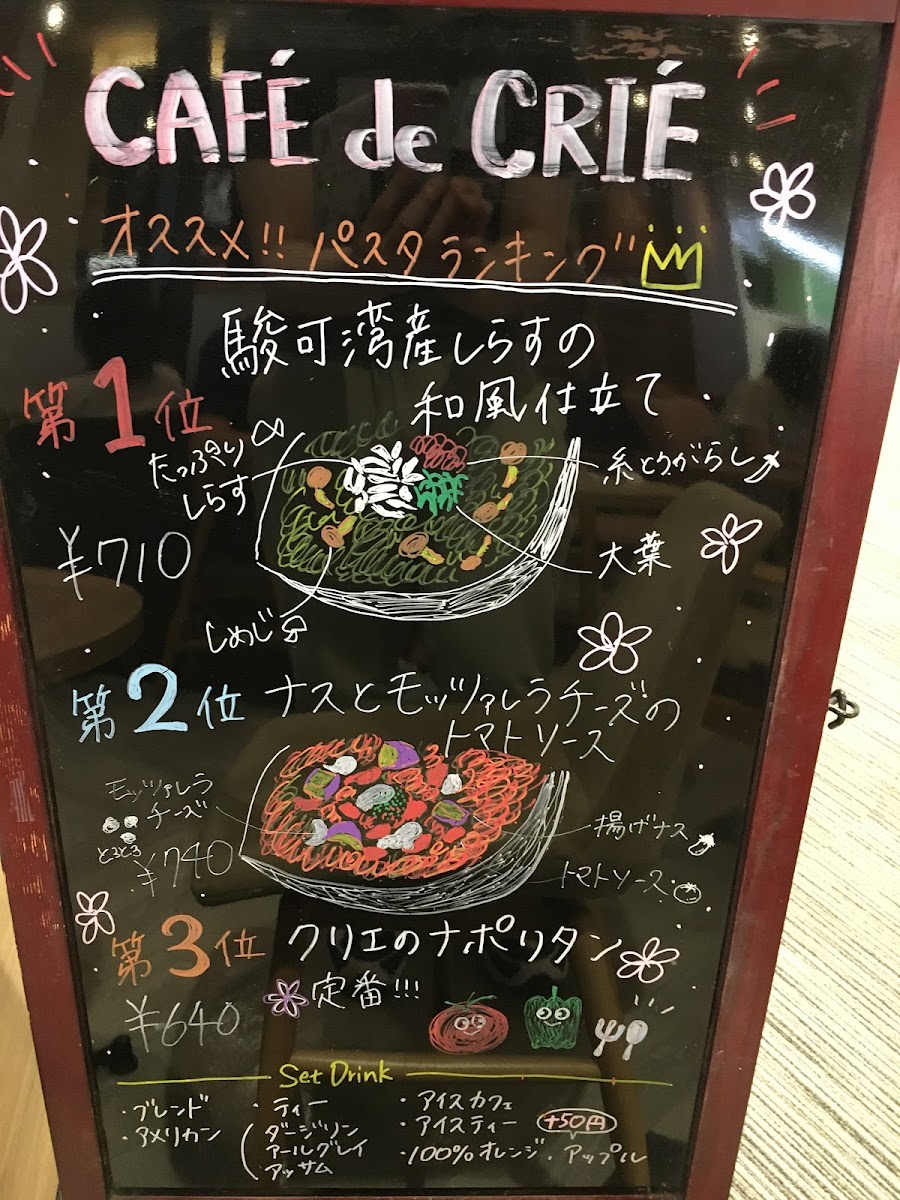 CAFÉ de CRIÉ
オススメ!! パスタランキング
第1位
駿可湾産しらすの
和風仕立て
たっぷり
しらす
糸とうがらし
¥710
大葉
しめじ
第2位
ナスとモッツァレラチーズの
トマトソース
モッツァレラ
チーズ
とろとろ
¥740
揚げナス
トマトソース
第3位
クリエのナポリタン
定番!!!
¥640
Set Drink
・ブレンド
・アメリカン
・ティー
ダージリン
アールグレイ
アッサム
・アイスカフェ
・アイスティー
+50円
・100%オレンジ・アップル